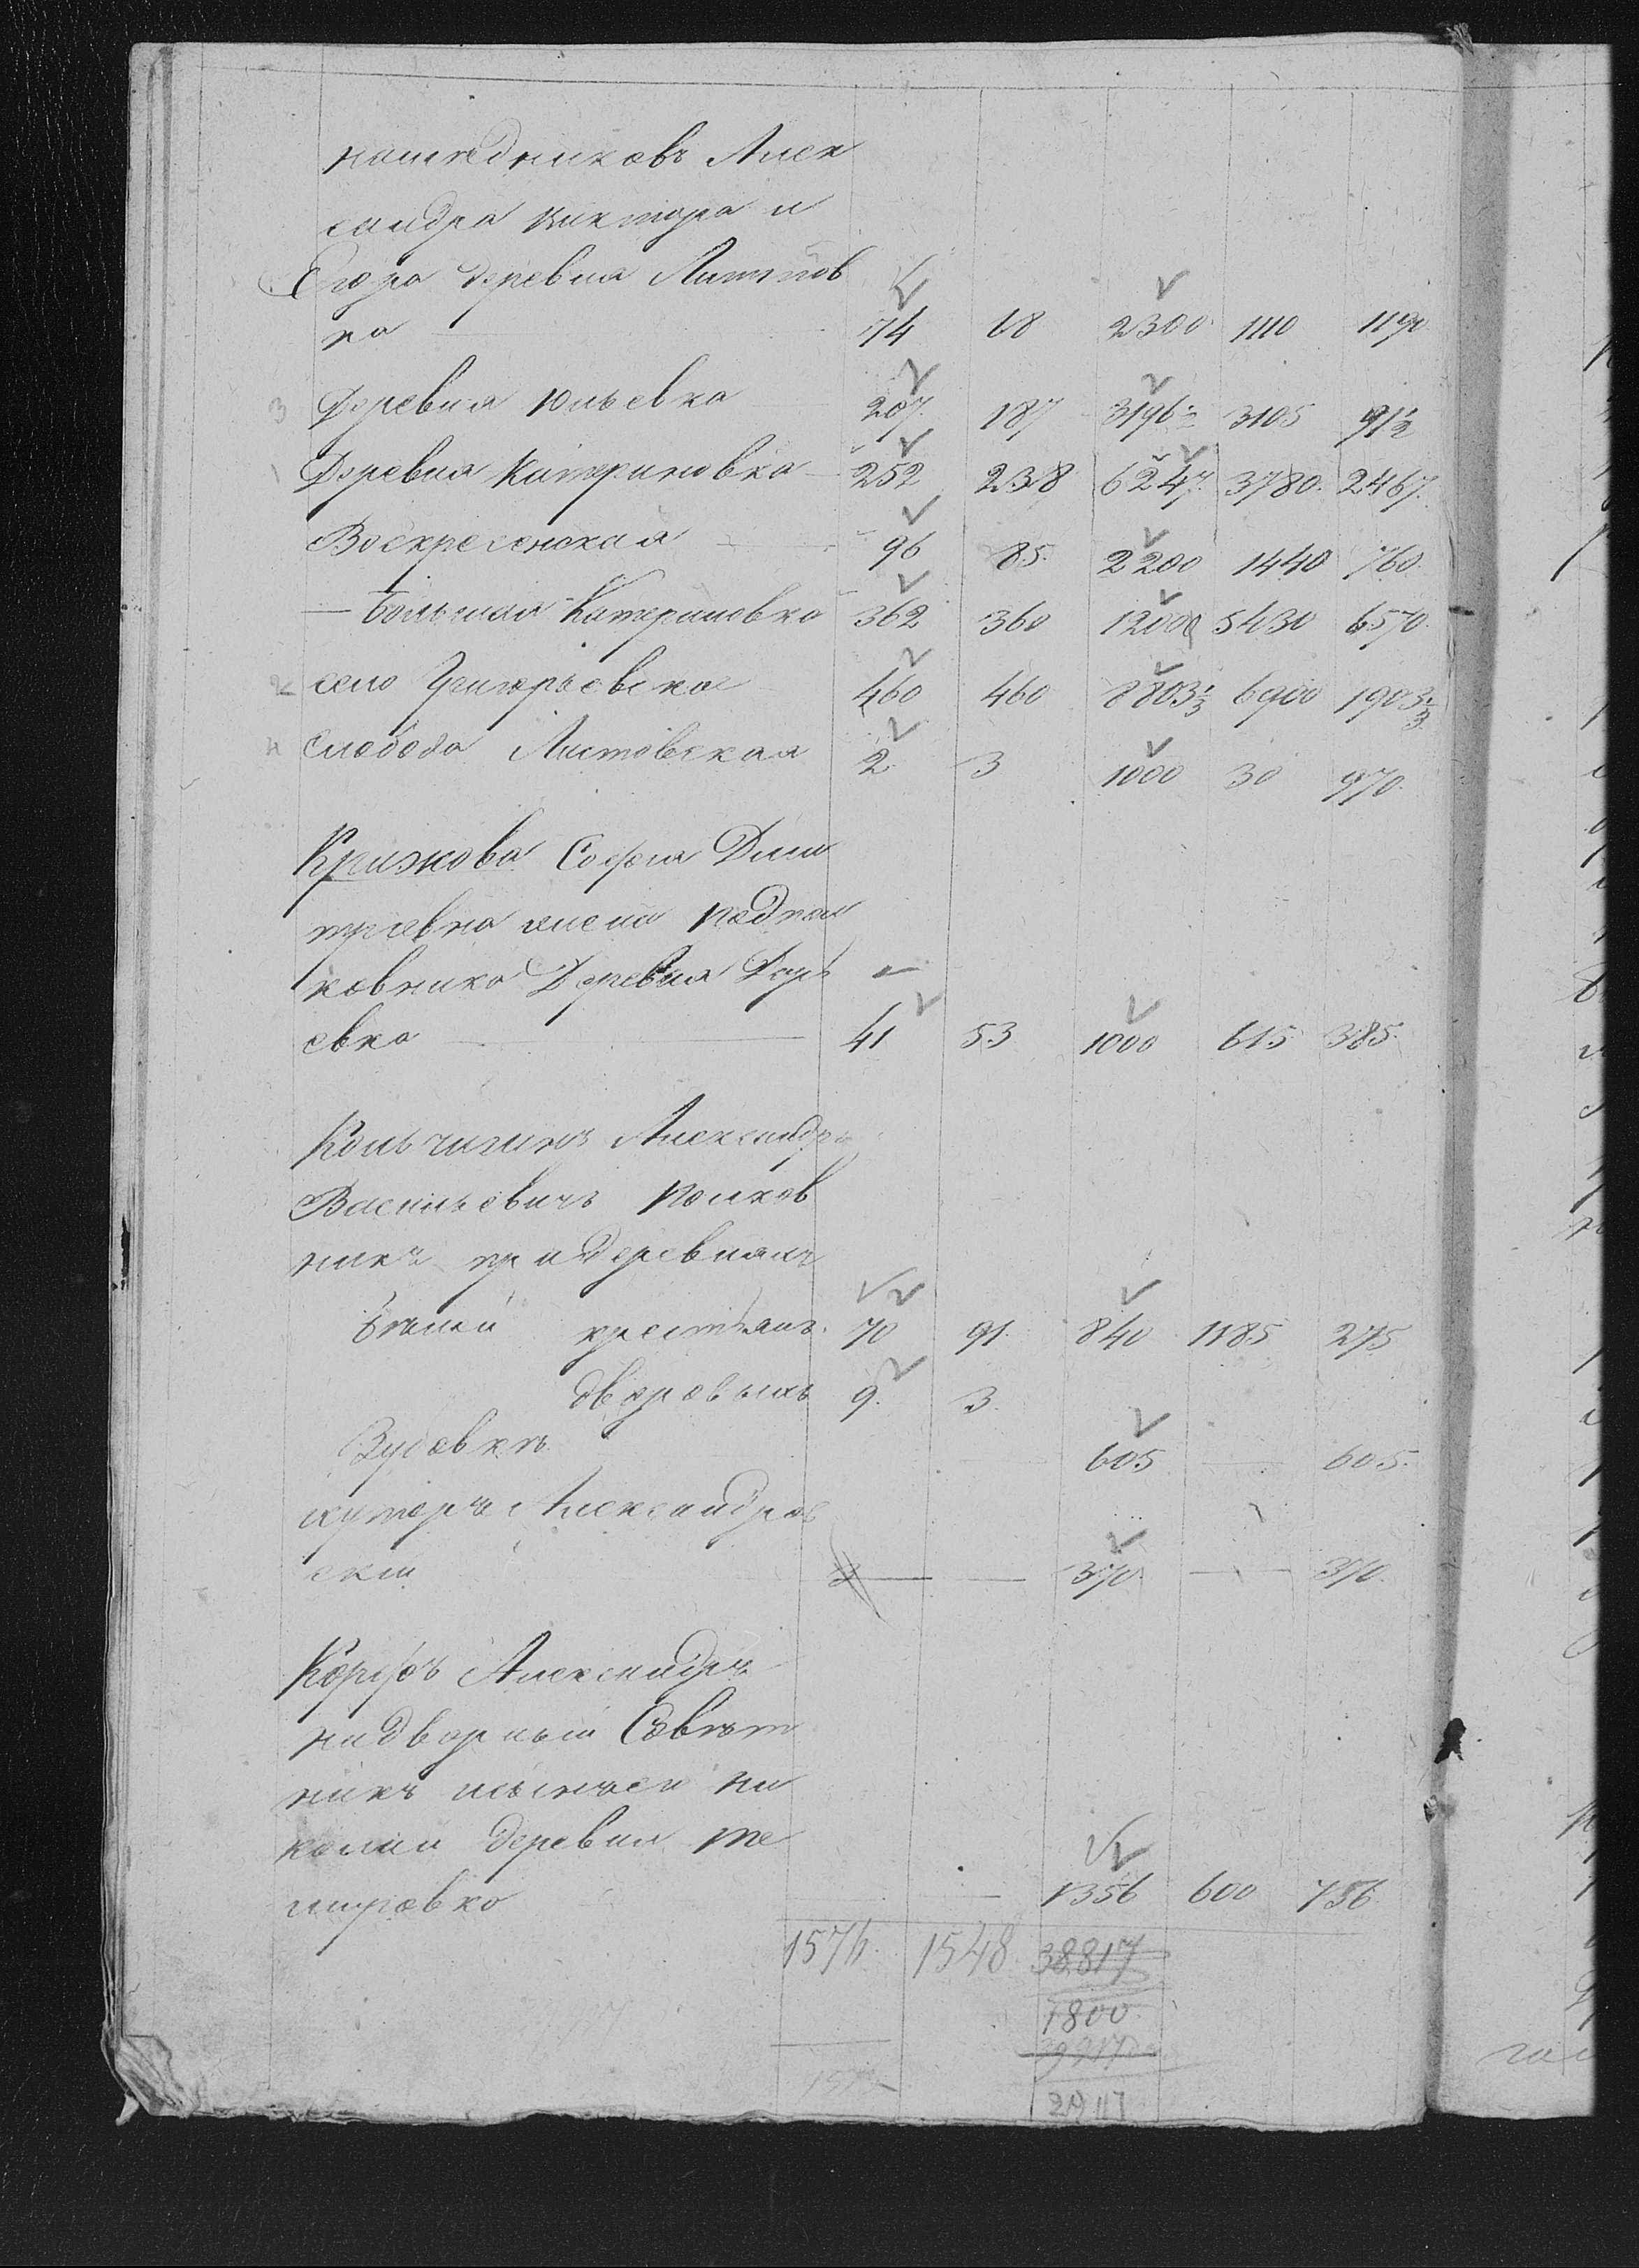 наследниковъ Алек
сандра Виктора и
Егора деревня Литвинов
ка 74 68 2300 1110 1190
3 Деревня Юльевка 207 187 3196½ 3105 91½
1 Деревня Катриновка 252 238 6247 3780 2467
Воскресенская 96 85 2200 1440 760
Большая Катериновка 362 360 12000 5430 6570
2 село Григорьевское 460 460 8803⅓ 6900 1903⅓
4 слобода Листовская 2 3 1000 30 970
Крижова София Дми
тревна жена подпол
ковника Деревня Дарь
евка 41 53 1000 615 385
Кольчигинъ Александръ
Васильевичъ полков
никъ при деревняхъ
крестьянъ 70 91 840 1185 275
дворовыхъ 9 3
Зуевкѣ 605 605
хуторъ Александров
скiй 370 370
Корфъ Александръ
надворный Совѣт
никъ
деревня Те
мировка 1356 600 756
1576 1548 38817
1800